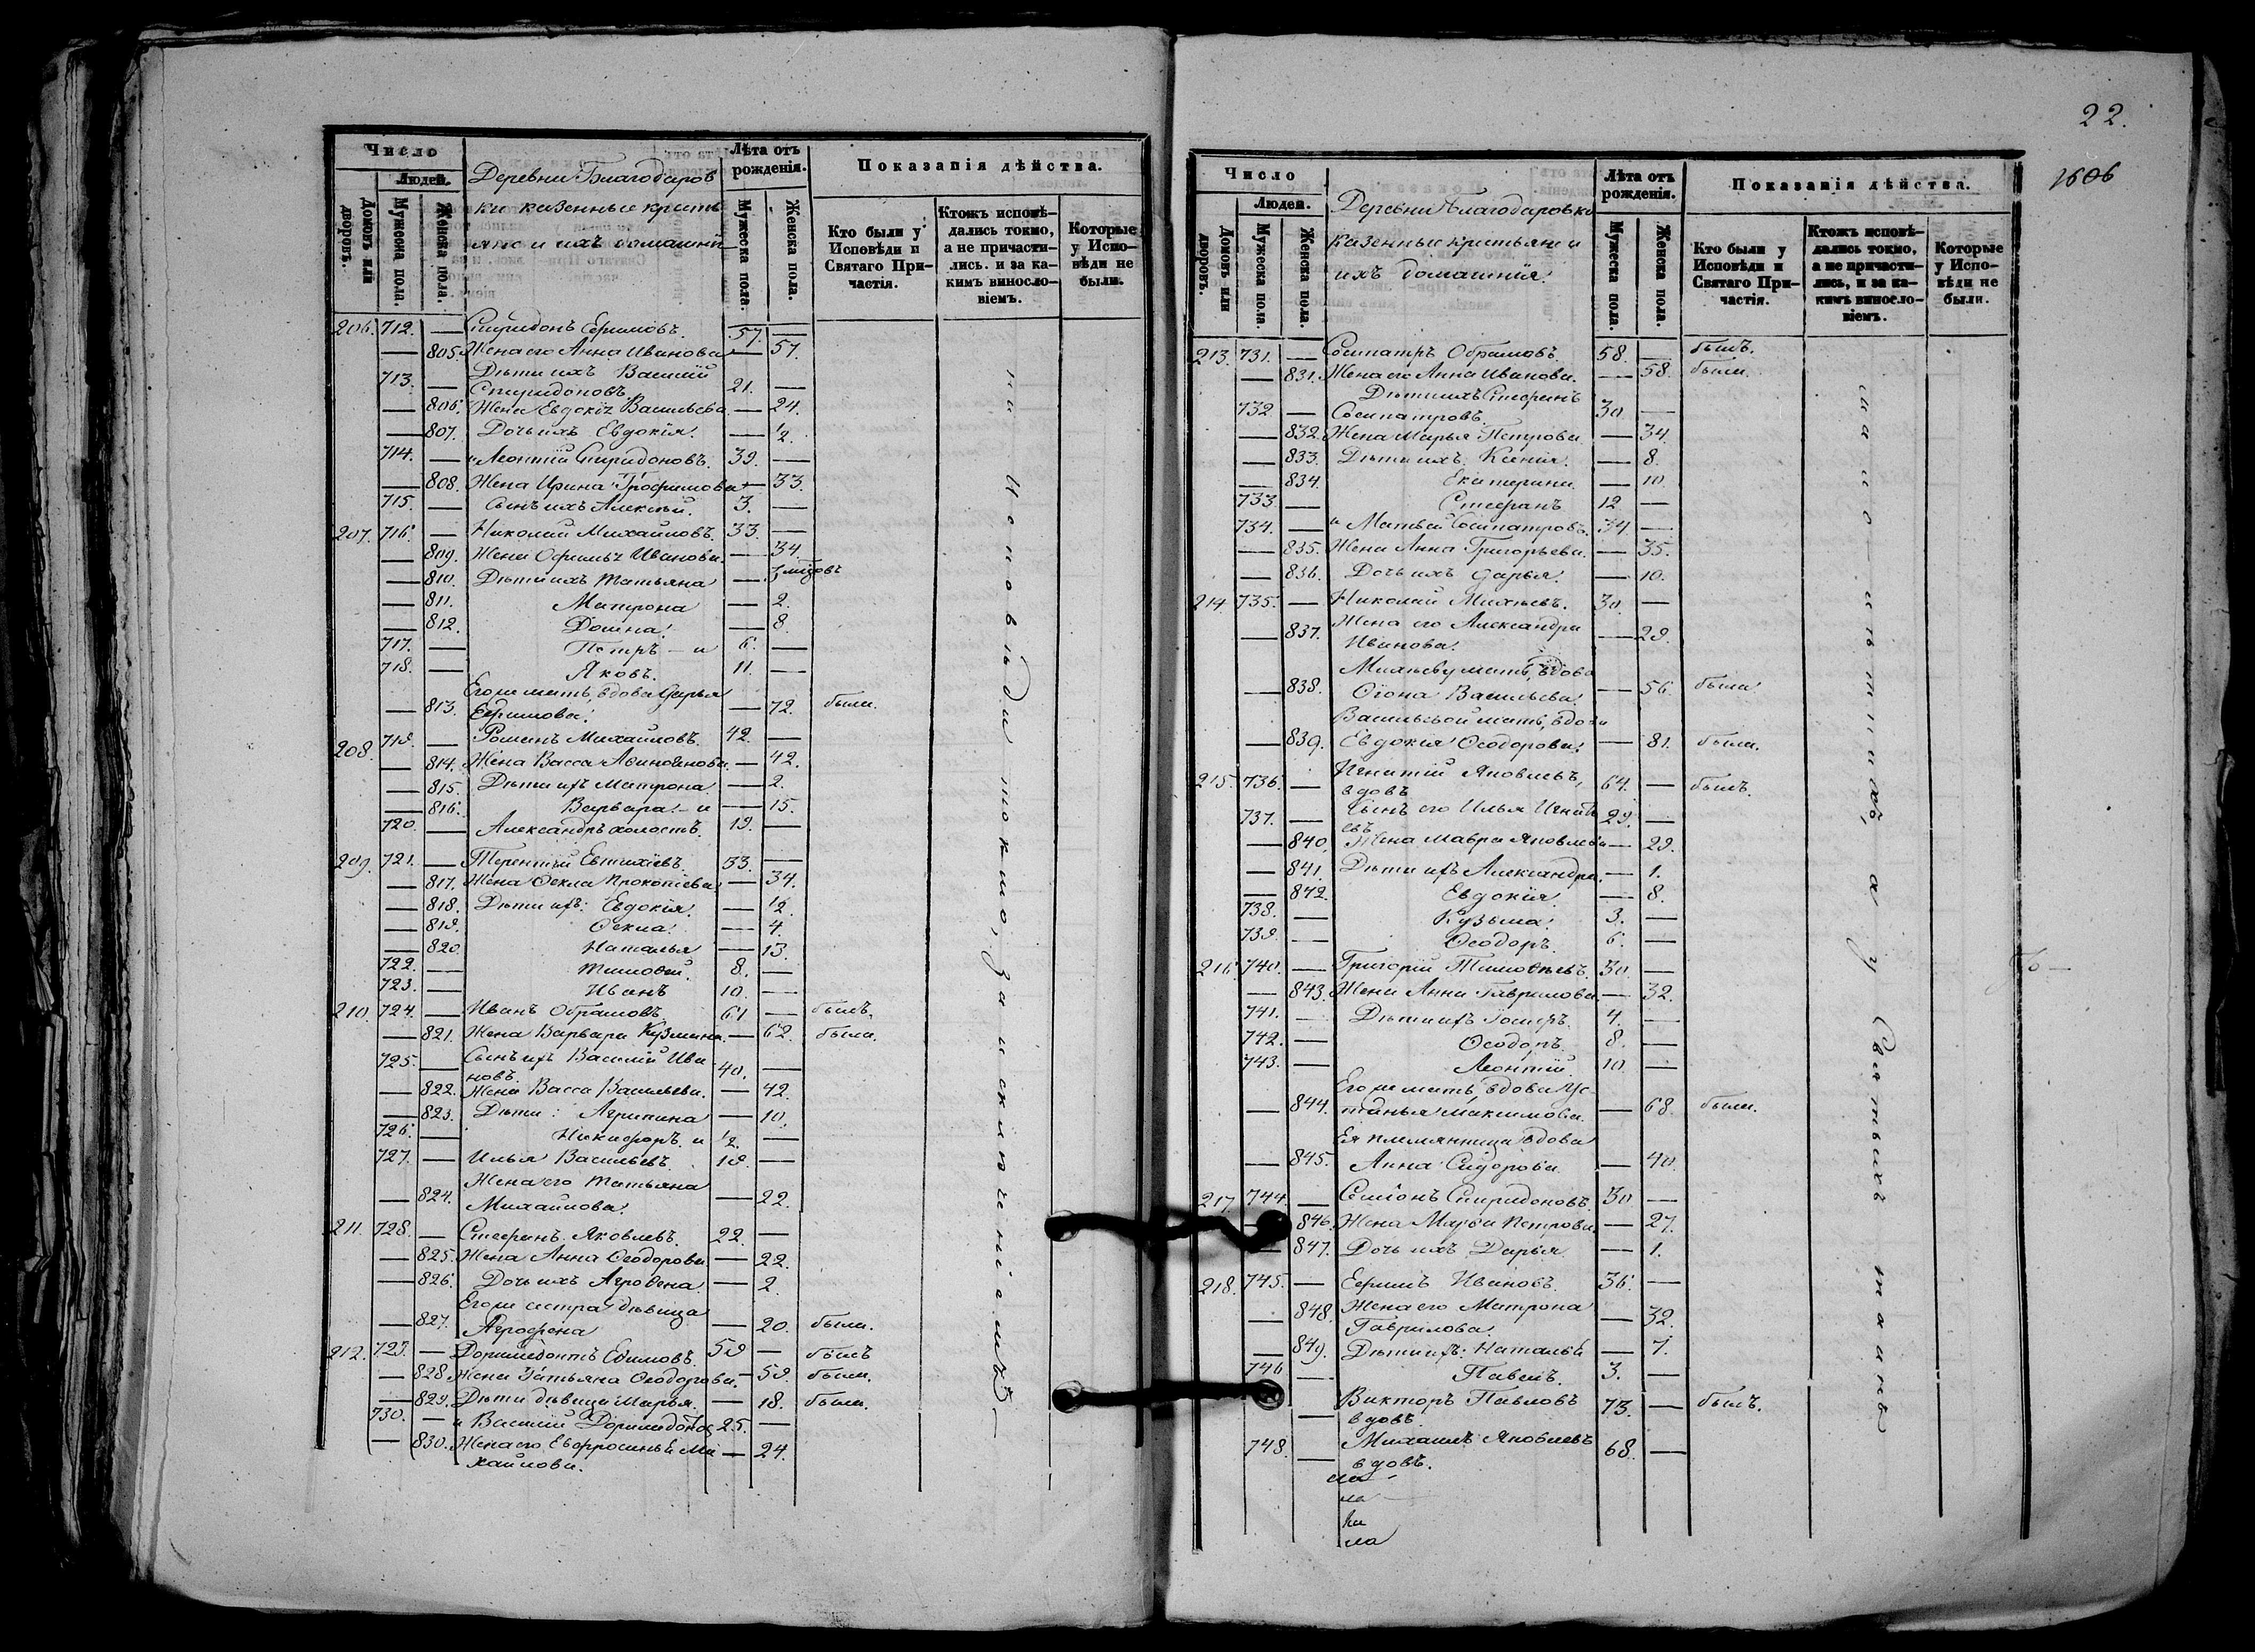 Число
Людей.
Домовъ или дворовъ.
Мужеска пола.
Женска пола.
Деревни Благодаров
ки казенные крестья
яне и ихъ домашнія
Лѣта отъ рожденія.
Мужеска пола.
Женска пола.
Показанія дѣйства.
Кто были у Исповѣди и Святаго Причастія.
Ктожъ исповѣдались токмо, а не причастились. и за какимъ винословіемъ.
Которые у Исповѣди не были.
206. 712. — Спиридонъ Ефимовъ. 57. —
— 805. Жена его Анна Иванова — 57.
713. — Дѣти ихъ Василій
Спиридоновъ. 21. —
— 806. Жена Евдокія Васильева. — 24.
— 807. Дочь ихъ Евдокія. — 1/2.
714. — Леонтій Спиридоновъ. 39. —
— 808. Жена Ирина Трофимова — 33.
715. — Сынъ ихъ Алексѣй. 3. —
207. 716. — Николай Михайловъ. 33. —
— 809. Жена Офимья Иванова. — 34.
— 810. Дѣти ихъ Татьяна —
— 811. Матрона — 2.
— 812. Домна. — 8.
717. — Петръ — и 6. —
718. — Яковъ. 11. —
Его же мать, вдова Дарья
— 813. Ефимова. — 72. была.
208. 719. — Романъ Михайловъ. 42. —
— 814. Жена Васса Авиногенова. — 42.
— 815. Дѣти ихъ Матрона. — 2.
— 816. Варвара — и — 15.
720. — Александръ холостъ. 19. —
209. 721. — Терентій Евтихіевъ. 33. —
— 817. Жена Ѳекла Прокопіева. — 34.
— 818. Дѣти ихъ: Евдокія. — 1/2.
— 819. Ѳекла. — 4.
— 820. Наталья — 13.
722. — Тимоѳей. 8. —
723. — Иванъ 10. —
210. 724. — Иванъ Обрамовъ. 61 — былъ.
— 821. Жена Варвара Кузмина. — 62. была.
725. — Сынъ ихъ Василій Ива
новъ. 40. —
— 822. Жена Васса Васильева. — 42.
— 823. Дѣти: Агрипина — 10.
726. — Никифоръ. и 1/2. —
727. — Илья Васильевъ. 19. —
Жена его Татьяна
— 824. Михайлова. — 22.
211. 728. — Стефанъ Яковлевъ. 22. —
— 825. Жена Анна Ѳеодорова — 22.
— 826. Дочь ихъ Агрофена. — 2.
Его же сестра дѣвица
— 827. Агрофена — 20. была.
212. 729. — Доримедонтъ Ефимовъ. 59 — былъ
— 828 Жена Татьяна Ѳеодорова. — 59. была.
— 829. Дѣти дѣвица Марья. — 18. была.
730. — и Василій Доримедонтов 25. —
— 830. Жена его Евфросинья Ми — 24.
хайлова.
на исповѣди токмо, за исключеніемъ
22.
1606
Число
Людей.
Домовъ или дворовъ.
Мужеска пола.
Женска пола.
Деревни Благодаровки
казенные крестьяне и
ихъ домашнія.
Лѣта отъ рожденія.
Мужеска пола.
Женска пола.
Показанія дѣйства.
Кто были у Исповѣди и Святаго Причастія.
Ктожъ исповѣдались токмо, а не причастились, и за какимъ винословіемъ.
Которые у Исповѣди не были.
213. 731. — Сосипатръ Обрамовъ. 58. — былъ.
— 831. Жена его Анна Иванова. — 58. была.
Дѣти ихъ Стефанъ
732 — Сосипатровъ. 30 —
— 832. Жена Марья Петрова — 34.
— 833. Дѣти ихъ: Ксенія. — 8.
— 834. Екатерина. — 10.
733. — Стефанъ 12 —
734. — и Матвей Сосипатровъ. 34. —
— 835. Жена Анна Григорьева. — 35.
— 836. Дочь ихъ Дарья. — 10.
214. 735. — Николай Михѣевъ. 30. —
Жена его Александра
— 837. Иванова. — 29.
Михѣеву мать, вдова
— 838. Васильева. — 56. была
Васильевой мать, вдова
— 839. Евдокія Ѳеодорова. — 81. была.
215. 736. — Игнатій Яковлевъ,
вдовъ 64. — былъ.
737. — Сынъ его Илья Игнать
евъ 29. —
— 840. Жена Мавра Яковлева — 29.
— 841. Дѣти ихъ Александра. — 1.
— 842. Евдокія. — 8.
738. — Кузьма. 3. —
739. — Ѳеодоръ. 6. —
216. 740. — Григорій Тимоѳеевъ. 30. —
— 843. Жена Анна Гаврилова. — 32.
741. — Дѣти ихъ Іосифъ. 4. —
742. — Ѳеодоръ. 8. —
743. — Леонтій. 10. —
Его же мать, вдова Ус
— 844. тинья Максимова. — 68. была.
Ея племянница вдова
— 845. Анна Сидорова. — 40.
217 744 — Семіонъ Спиридоновъ. 30 —
846. Жена Марѳа Петрова. — 27.
— 847. Дочь ихъ Дарья — 1.
218. 745. — Ефимъ Ивановъ. 36. —
848. Жена его Матрона
— Гаврилова. — 32.
— 849. Дѣти ихъ: Наталья — 7.
746 — Павелъ. 3. —
Викторъ Павловъ
— вдовъ. 73. — былъ.
748. Михаилъ Яковлевъ
— вдовъ. 68. —
на исповѣди
а у Святыхъ таинъ